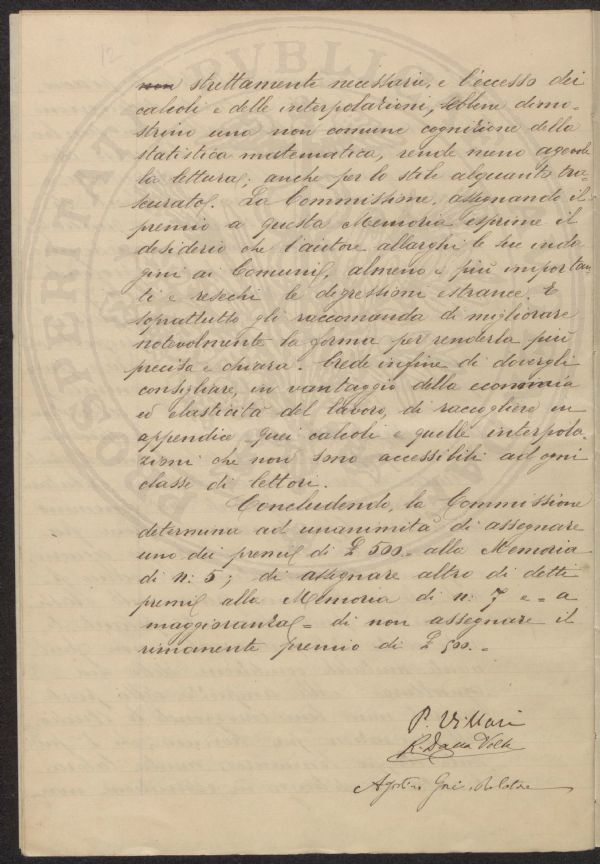 12
non strettamente necessarie, e l'eccesso dei
calcoli e delle interpolazioni, sebbene dimo-
strino una non comune cognizione della
statistica matematica, rende meno agevole
la lettura; anche per lo stile alquanto tra-
scurato. La Commissione, assegnando il
premio a questa Memoria esprime il
desiderio che l'autore allarghi le sue inda
gini ai Comuni, almeno i più importan-
ti e resechi le digressioni estranee. E
soprattutto gli raccomanda di migliorare
notevolmente la forma per renderla più
precisa e chiara. Crede infine di dovergli
consigliare, in vantaggio della economia
ed elasticità del lavoro, di raccogliere in
appendice quei calcoli e quelle interpola-
zioni che non sono accessibili ad ogni
classe di lettori.
Concludendo, la Commissione
determina ad unanimità di assegnare
uno dei premii di £ 500.= alla Memoria
di n: 5; di assegnare altro di detti
premii alla Memoria di n: 7 e = a
maggioranza = di non assegnare il
rimanente premio di £ 500.=
P. Villari
R. Dalla Volta
Agostino Relatore